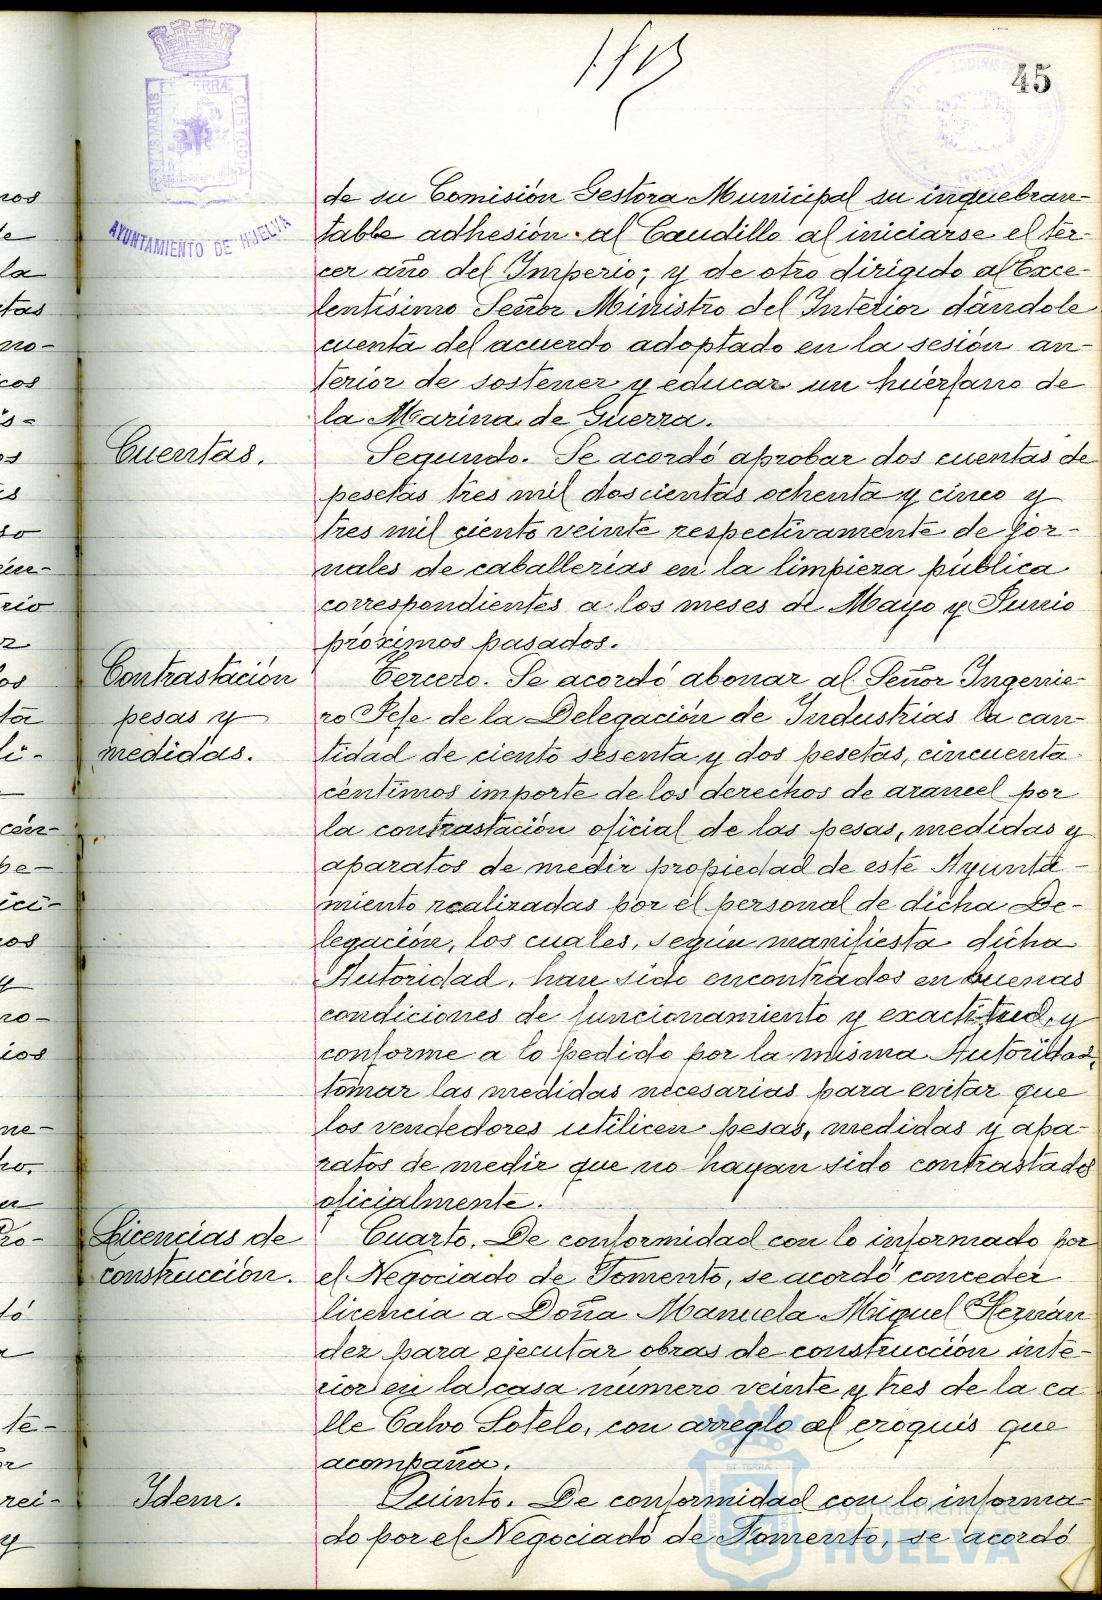 45
PORTUS MARIS ET TERRAE CUSTODIA
AYUNTAMIENTO DE HUELVA
de su Comisión Gestora Municipal su inquebran-
table adhesión al Caudillo al iniciarse el ter-
cer año del Imperio; y de otro dirigido al Exce-
lentísimo Señor Ministro del Interior dándole
cuenta del acuerdo adoptado en la sesión an-
terior de sostener y educar un huérfano de
la Marina de Guerra.
Cuentas.
Segundo. Se acordó aprobar dos cuentas de
pesetas tres mil doscientas ochenta y cinco y
tres mil ciento veinte respectivamente de jor-
nales de caballerías en la limpieza pública
correspondientes a los meses de Mayo y Junio
próximos pasados.
Contrastación
pesas y
medidas.
Tercero. Se acordó abonar al Señor Ingenie-
ro Jefe de la Delegación de Industrias la can-
tidad de ciento sesenta y dos pesetas, cincuenta
céntimos importe de los derechos de arancel por
la contrastación oficial de las pesas, medidas y
aparatos de medir propiedad de este Ayunta-
miento realizadas por el personal de dicha De-
legación, los cuales, según manifiesta dicha
Autoridad, han sido encontrados en buenas
condiciones de funcionamiento y exactitud, y
conforme a lo pedido por la misma Autoridad,
tomar las medidas necesarias para evitar que
los vendedores utilicen pesas, medidas y apa-
ratos de medir que no hayan sido contrastados
oficialmente.
Licencias de
construcción.
Cuarto. De conformidad con lo informado por
el Negociado de Fomento, se acordó conceder
licencia a Doña Manuela Miquel Hernán
dez para ejecutar obras de construcción inte-
rior en la casa número veinte y tres de la ca
lle Calvo Sotelo, con arreglo al croquis que
acompaña.
Idem.
Quinto. De conformidad con lo informa-
do por el Negociado de Fomento, se acordó
Ayuntamiento de
HUELVA